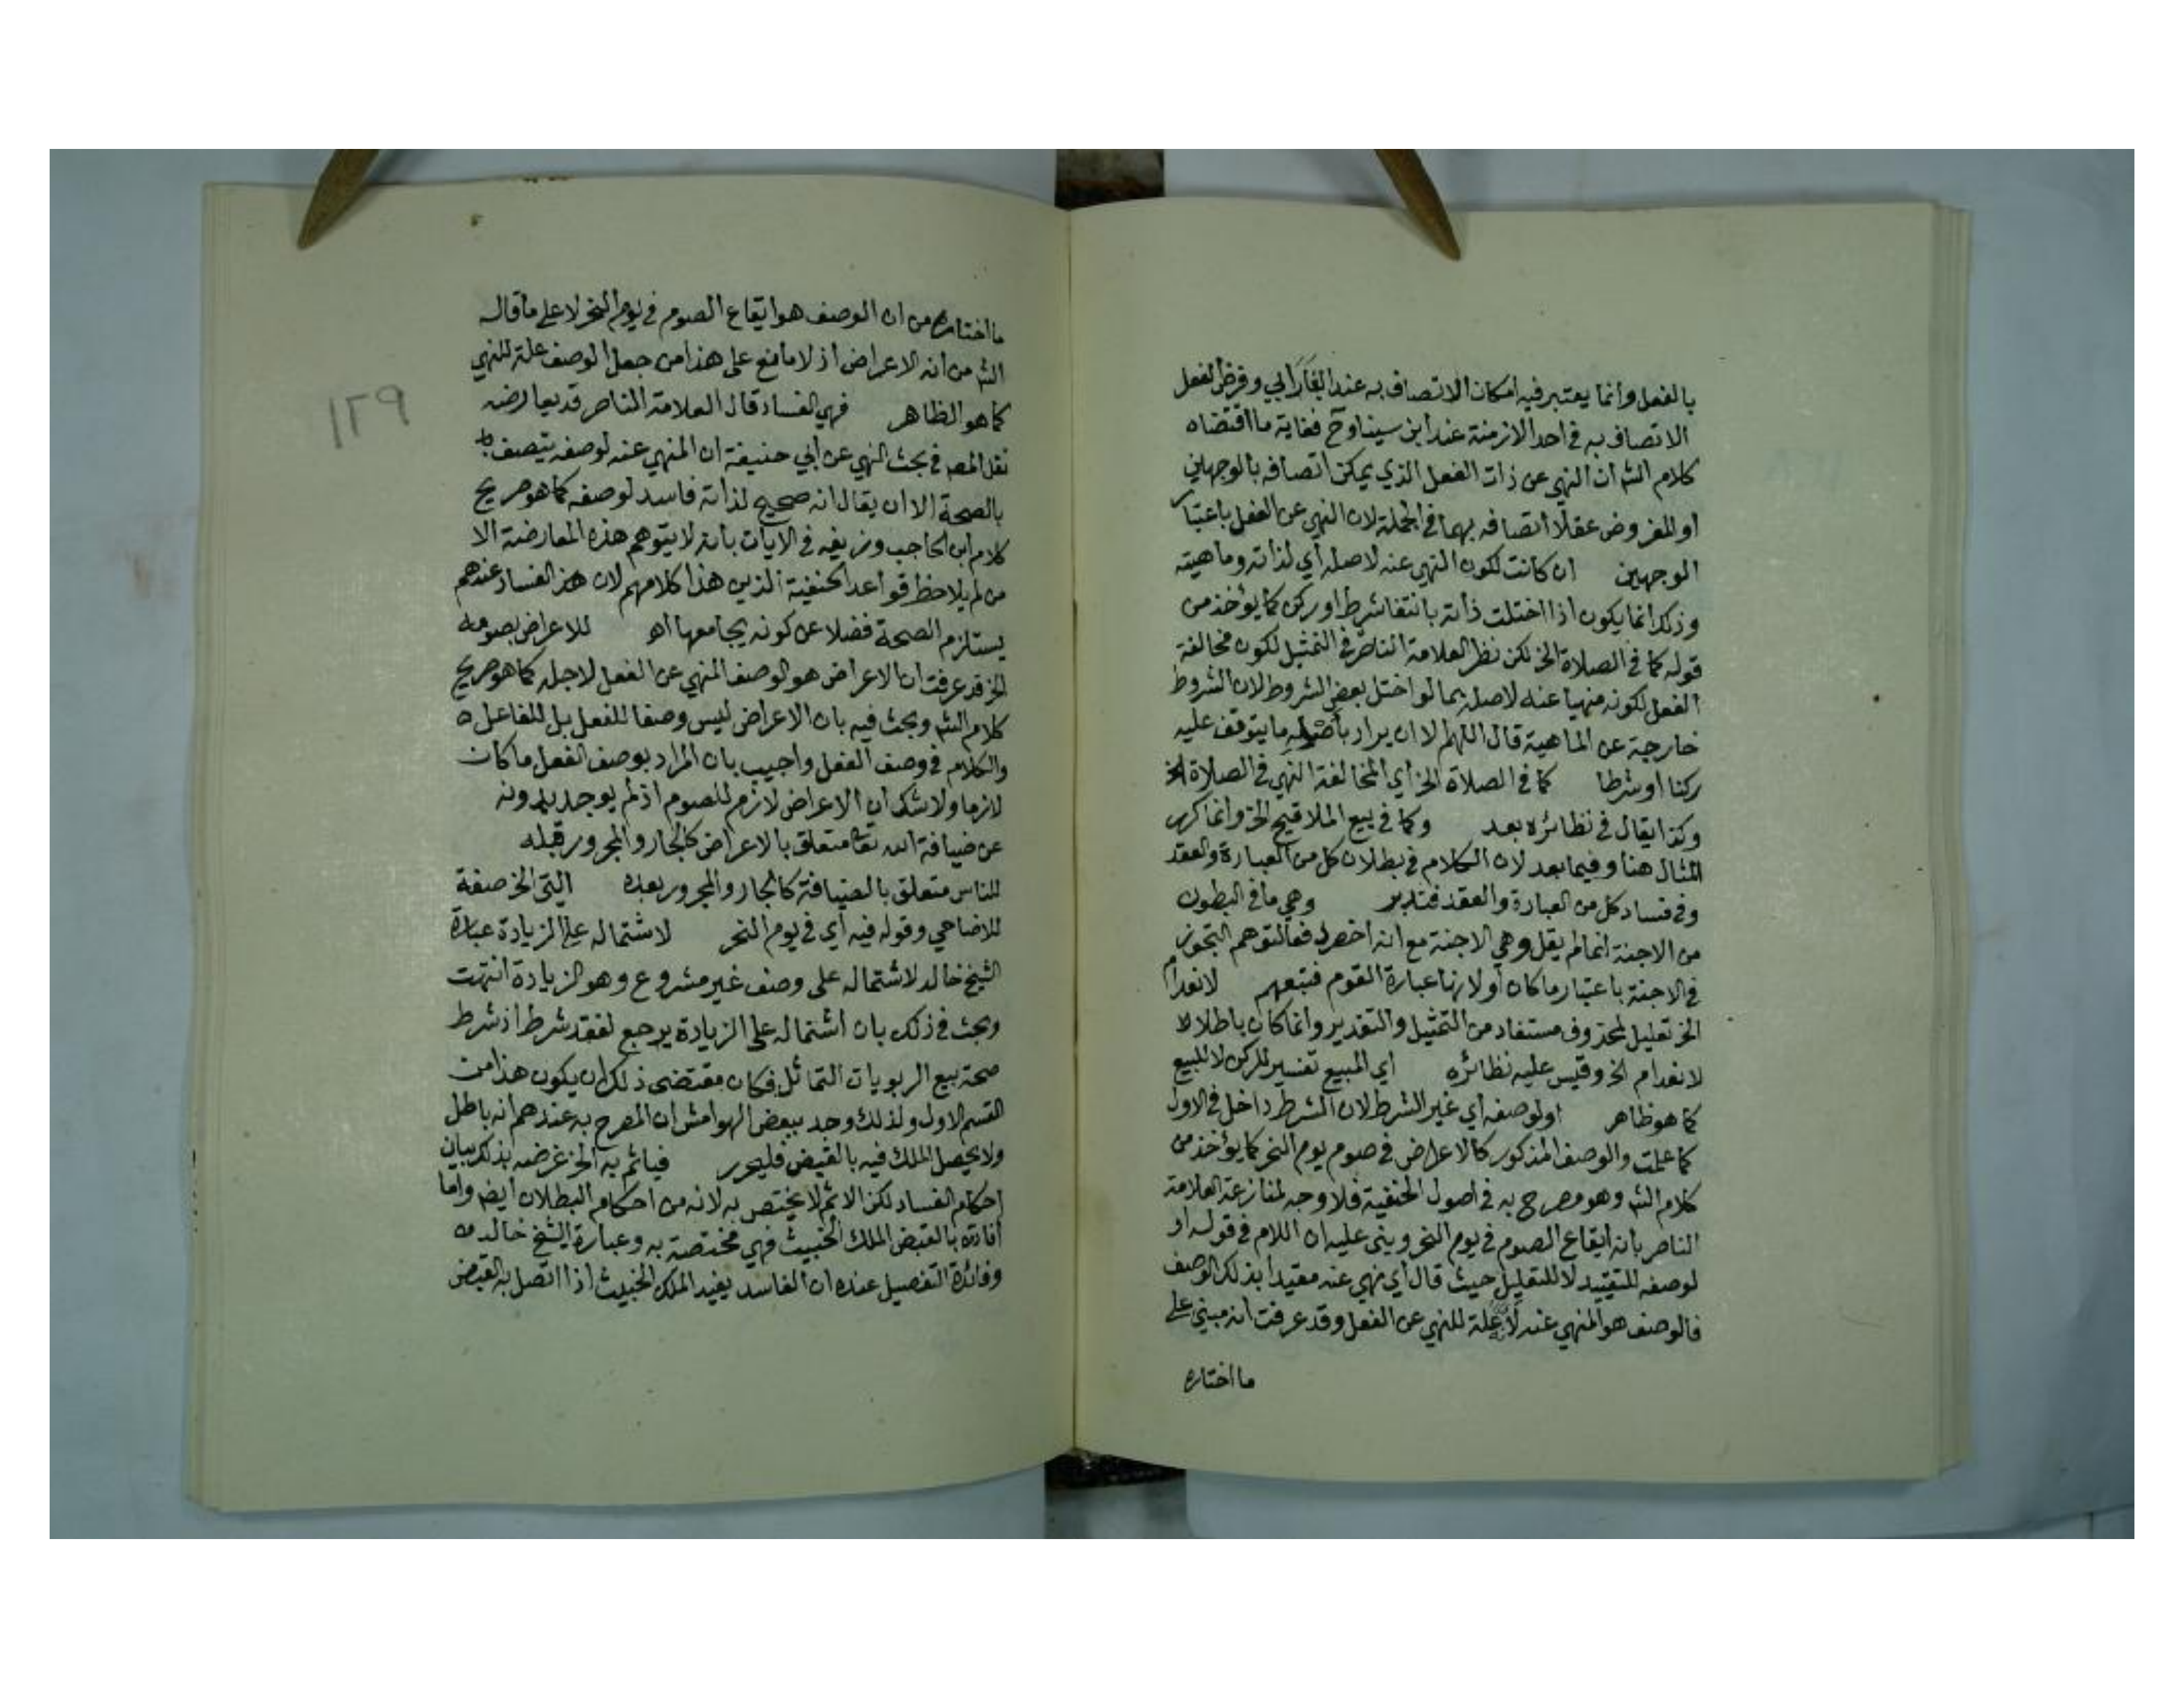 بالفعل وانما يعتبر فيه امكان الاتصاف به عند الفَارَابي وفرض الفعل
الاتصاف به في احد الازمنة عند ابن سينا وح فغاية ما اقتضاه
كلام الشه ان النهي عن ذات الفعل الذي يمكن اتصافه بالوجهين
او المفروض عقلا اتصافه بهما في الجملة لان النهي عن الفعل باعتبار
الوجهين ان كانت لكون النهي عنه لاصله أي لذاته وماهيته
وذلك انما يكون اذا اختلت ذاته بانتفا شرط او ركن كما يؤخذ من
قوله كما في الصلاة الخ لكن نظر العلامة الناصر في التمثيل لكون مخالفة
الفعل لكونه منهيا عنه لاصله بما لو اختل بعض الشروط لان الشروط
خارجة عن الماهية قال اللهم الا ان يراد بأصله ما يتوقف عليه
ركنا او شرطا كما في الصلاة الخ أي المخالفة النهي في الصلاة الخ
وكذا يقال في نظائره بعد وكما في بيع الملاقيح الخ وانما كرر
المثال هنا وفيما بعد لان الكلام في بطلان كل من العبارة والعقد
وفي فساد كل من العبارة والعقد فتدبر وهي ما في البطون
من الاجنة انما لم يقل وهي الاجنة مع انه اخصر دفعا لتوهم التجوز
في الاجنة باعتبار ما كان او لانها عبارة القوم فتبعهم لانعدام
الخ تعليل لمحذوف مستفاد من التمثيل والتقدير وانما كان باطلا لا
لانعدام الخ وقيس عليه نظائره أي المبيع تفسير للركن لا للبيع
كما هو ظاهر او لوصفه أي غير الشرط لان الشرط داخل في الاول
كما علمت والوصف المذكور كالاعراض في صوم يوم النحر كما يؤخذ من
كلام الشه وهو مصرح به في اصول الحنفية فلا وجه لمنازعة العلامة
الناصر بأنه ايقاع الصوم في يوم النحر وبنى عليه ان اللام في قوله او
لوصفه للتقييد لا للتعليل حيث قال أي نهي عنه مقيدا بذلك الوصف
فالوصف هو المنهي عنه لا علة للنهي عن الفعل وقد عرفت انه مبني على
ما اختاره
١٢٩
ما اختاره من ان الوصف هو ايقاع الصوم في يوم النحر لا على ما قاله
الشه من انه الاعراض اذ لا مانع على هذا من جعل الوصف علة للنهي
كما هو الظاهر فهي الفساد قال العلامة الناصر قد يعارضه
نقل المصه في بحث النهي عن ابي حنيفة ان المنهي عنه لوصفه يتصف
بالصحة الا ان يقال انه صحيح لذاته فاسد لوصفه كما هو صريح
كلام ابن الحاجب وزيفه في الايات بأنه لا يتوهم هذه المعارضة الا
من لم يلاحظ قواعد الحنفية الذين هذا كلامهم لان هذا الفساد عندهم
يستلزم الصحة فضلا عن كونه يجامعها اه للاعراض بصومه
الخ قد عرفت ان الاعراض هو الوصف المنهي عن الفعل لاجله كما هو صريح
كلام الشه وبحث فيه بان الاعراض ليس وصفا للفعل بل للفاعل ه
والكلام في وصف الفعل واجيب بان المراد بوصف الفعل ما كان
لازما ولا شك ان الاعراض لازم للصوم اذ لم يوجد بدونه
عن ضيافة الله تعا متعلق بالاعراض كالجار والمجرور قبله
للناس متعلق بالضيافة كالجار والمجرور بعده التي الخ صفة
للاضاحي وقوله فيه أي في يوم النحر لاشتماله على الزيادة عبارة
الشيخ خالد لاشتماله على وصف غير مشروع وهو الزيادة انتهت
وبحث في ذلك بان اشتماله على الزيادة يرجع لفقد شرط اذ شرط
صحة بيع الربويات التماثل فكان مقتضى ذلك ان يكون هذا من
القسم الاول ولذلك وجد ببعض الهوامش ان المصرح به عندهم انه باطل
ولا يحصل الملك فيه بالقبض فليحرر فيأثم به الخ غرضه بذلك بيان
احكام الفساد لكن الاثم لا يختص به لانه من احكام البطلان ايضه واما
افادته بالقبض الملك الخبيث فهي مختصة به وعبارة الشيخ خالد
وفائدة التفصيل عنده ان الفاسد يفيد الملك الخبيث اذا اتصل به القبض